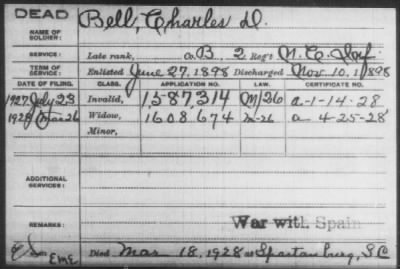 DEAD
NAME OF SOLDIER: Bell, Charles D.
SERVICE: Late rank, Co. B, 2 Reg't N. C. Inf
TERM OF SERVICE: Enlisted June 27, 1898 Discharged Nov. 10, 1898
DATE OF FILING. CLASS. APPLICATION NO. LAW. CERTIFICATE NO.
1927 July 23 Invalid, 1587,314 M/26 a-1-14-28
1928 Mar 26 Widow, 1608,674 M-26 a-4-25-28
Minor,
ADDITIONAL SERVICES:
REMARKS: War with Spain
EME Died Mar 18, 1928 at Spartanburg, S C